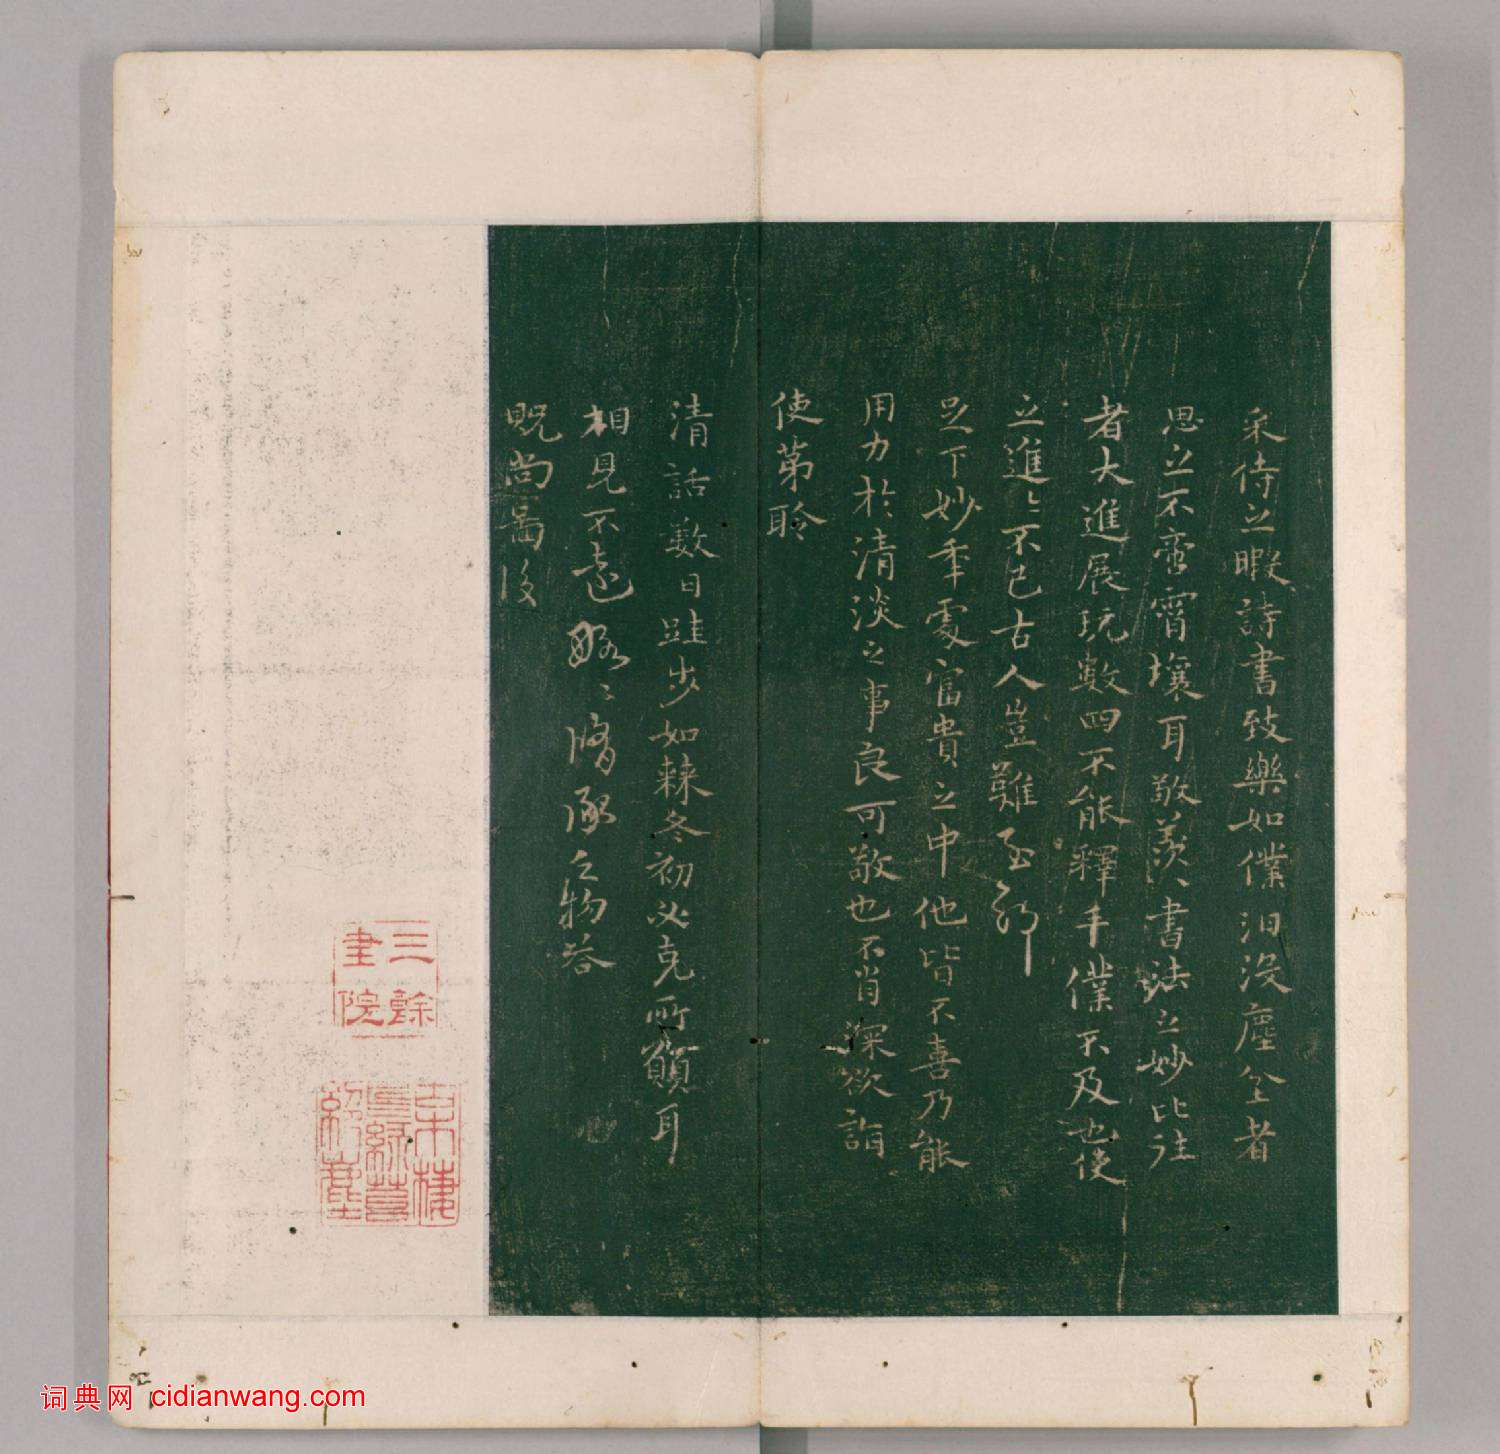 采侍之暇詩書致樂如僕汩沒塵坌者
思之不啻霄壤耳敬羨、書法之妙比往
者大進展玩數四不能釋手僕不及也使
之進、不已古人豈難至邪
足下妙年處富貴之中他皆不喜乃能
用力於清淡之事良可敬也不肖深欲詣
使第聆
清話數日跬步如棘冬初必克所願耳
相見不遠略、脩承之物答
貺尚啚後
三餘
書院
詞典网 cidianwang.com